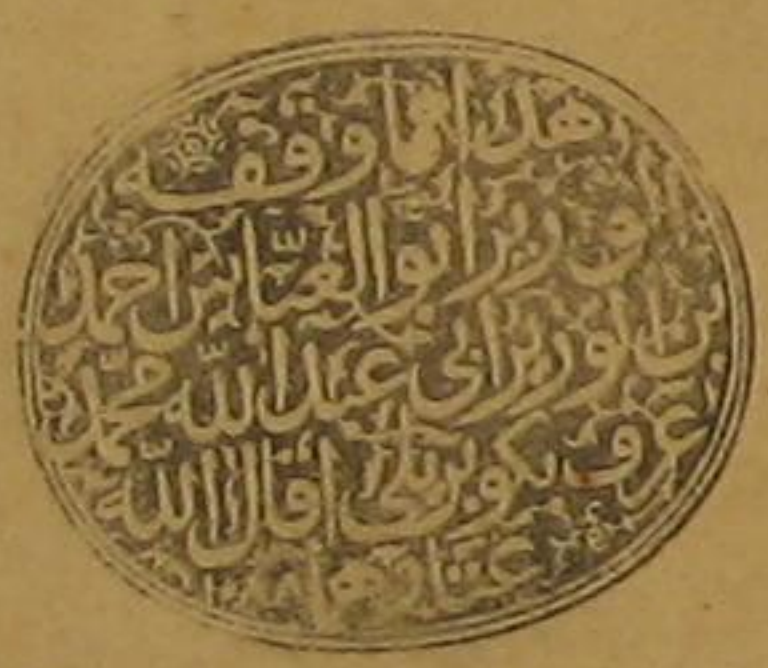 هذا مما وقفه
وزير ابو العباس احمد
بن الوزير ابي عبد الله محمد
عرف بكوبريلي اقال الله
عثارهما